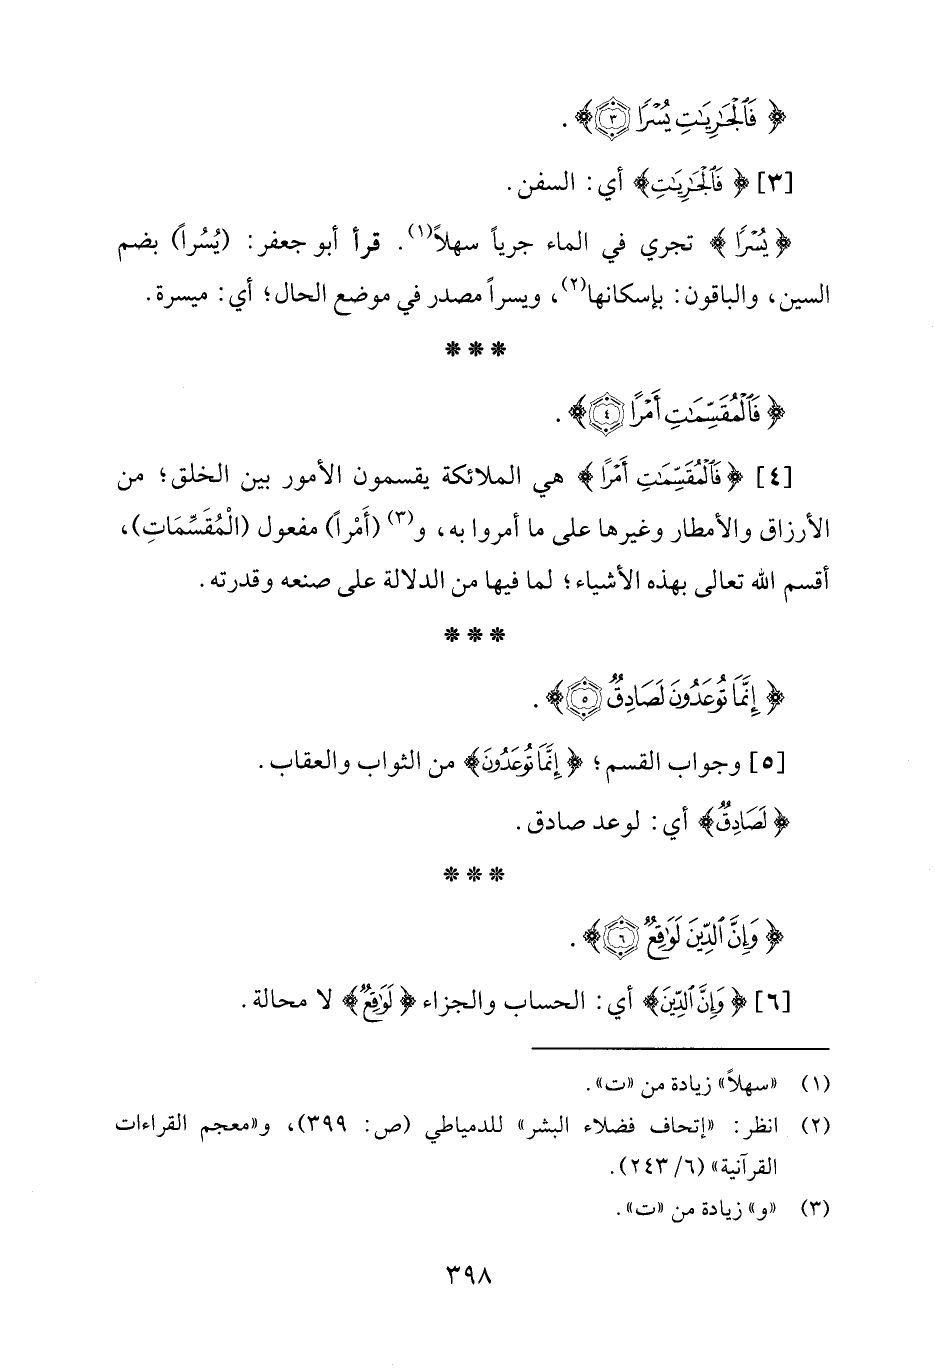 ﴿ فَٱلْجَٰرِيَٰتِ يُسْرًا ۝٣ ﴾ .
[٣] ﴿ فَٱلْجَٰرِيَٰتِ ﴾ أي: السفن .
﴿ يُسْرًا ﴾ تجري في الماء جرياً سهلاً(١). قرأ أبو جعفر: (يُسُراً) بضم
السين، والباقون: بإسكانها(٢)، ويسراً مصدر في موضع الحال؛ أي: ميسرة.
***
﴿ فَٱلْمُقَسِّمَٰتِ أَمْرًا ۝٤ ﴾ .
[٤] ﴿ فَٱلْمُقَسِّمَٰتِ أَمْرًا ﴾ هي الملائكة يقسمون الأمور بين الخلق؛ من
الأرزاق والأمطار وغيرها على ما أمروا به، و(٣) (أَمْراً) مفعول (الْمُقَسِّمَاتِ)،
أقسم الله تعالى بهذه الأشياء؛ لما فيها من الدلالة على صنعه وقدرته .
***
﴿ إِنَّمَا تُوعَدُونَ لَصَادِقٌ ۝٥ ﴾ .
[٥] وجواب القسم؛ ﴿ إِنَّمَا تُوعَدُونَ ﴾ من الثواب والعقاب .
﴿ لَصَادِقٌ ﴾ أي: لوعد صادق .
***
﴿ وَإِنَّ ٱلدِّينَ لَوَٰقِعٌ ۝٦ ﴾ .
[٦] ﴿ وَإِنَّ ٱلدِّينَ ﴾ أي: الحساب والجزاء ﴿ لَوَٰقِعٌ ﴾ لا محالة .
(١) «سهلاً» زيادة من «ت» .
(٢) انظر: «إتحاف فضلاء البشر» للدمياطي (ص: ٣٩٩)، و«معجم القراءات
القرآنية» (٦/ ٢٤٣).
(٣) «و» زيادة من «ت» .
٣٩٨